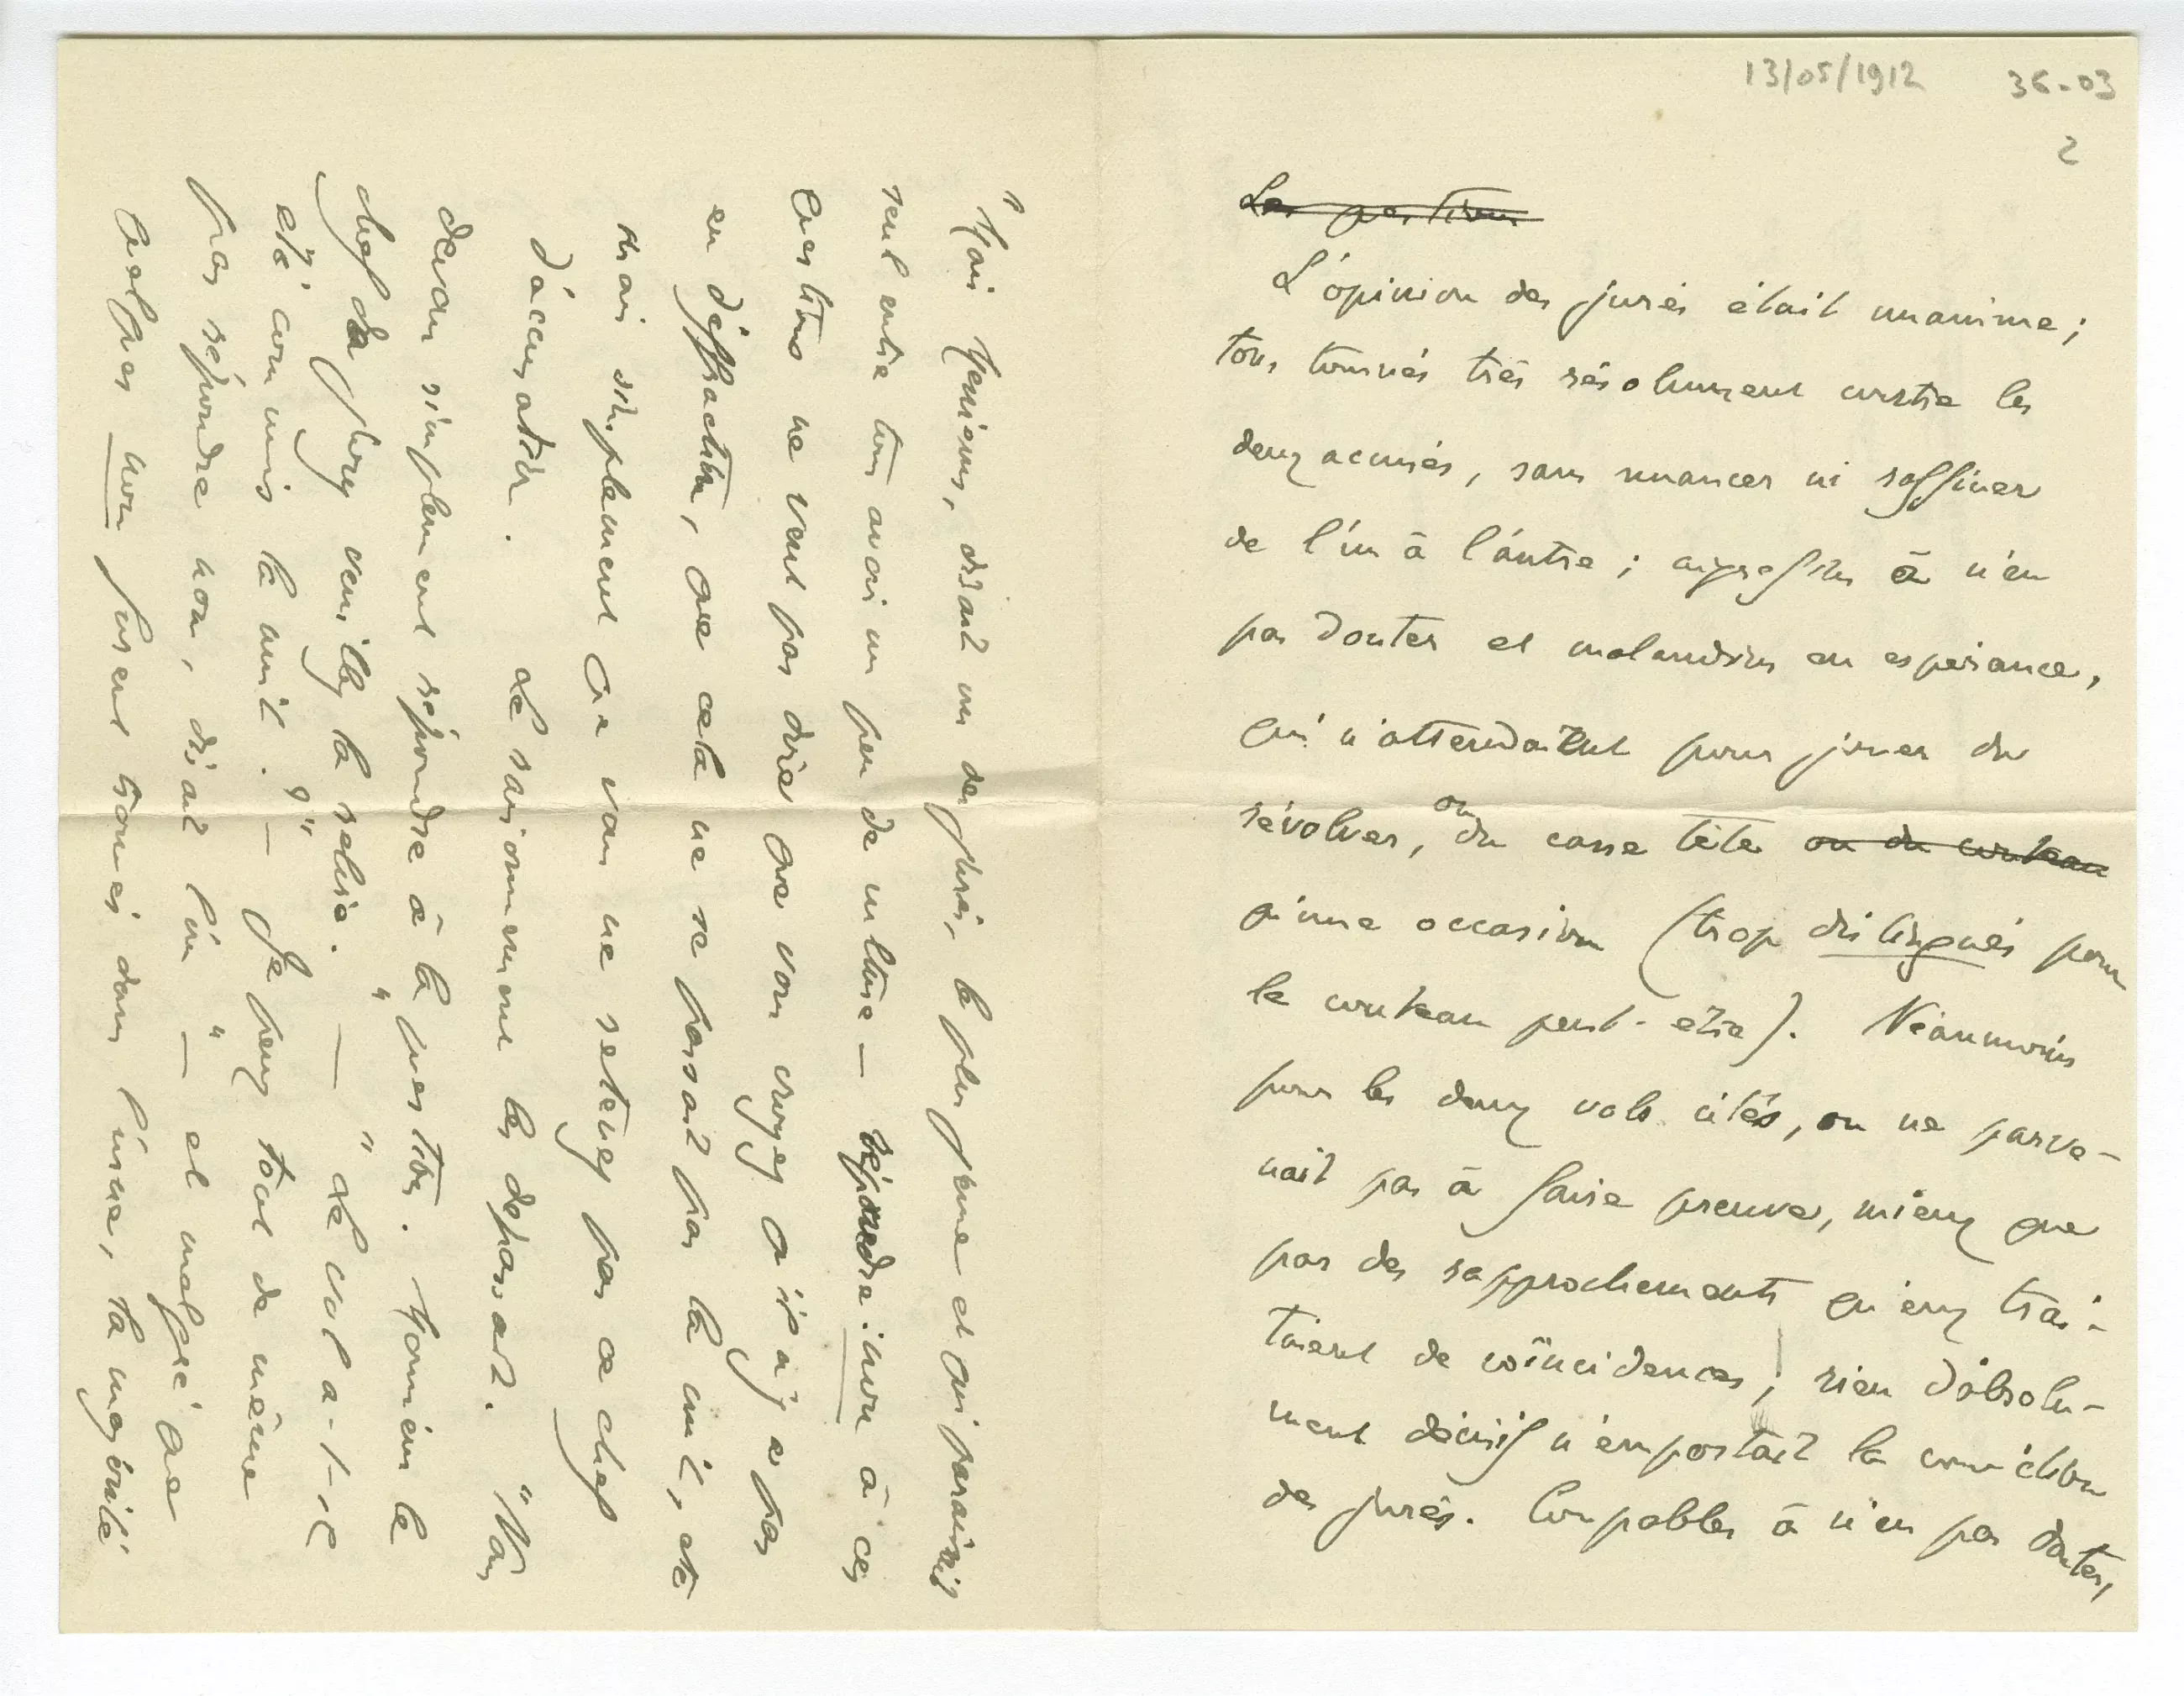 13/05/1912 36-03
2
Les position
L'opinion des jurés était unanime ;
tous tournés très résolument contre les
deux accusés, sans nuancer ni raffiner
de l'un à l'autre ; aigrefins à n'en
pas douter et malandrins en espérance,
qui n'attendaient pour jouer du
révolver, ou du casse tête ou du couteau
qu'une occasion (trop distingués pour
le couteau peut-être). Néanmoins
pour les deux vols cités, on ne parve-
nait pas à faire preuve, mieux que
par des rapprochements qu'eux trai-
taient de coïncidences ; rien d'absolu-
ment décisif n'emportait la conviction
des jurés. Coupables à n'en pas douter,
"Mais Messieurs, disait un des jurés, le plus jeune et qui paraissait
seul entre tous avoir un peu de culture — répondre : non à ces
questions ne veut pas dire que vous croyez qu'il n'y a pas
eu d'éffraction, que cela ne se passait pas la nuit, etc
mais simplement que vous ne retenez pas ce chef
d'accusation. Le raisonnement les dépassait. "Nous
devons simplement répondre à la question. Monsieur le
chef du jury veuillez la relire." — "Le vol a-t-il
été commis la nuit ?" — Je peux tout de même
pas répondre non, disait l'un" — et malgré que
quelques non furent trouvés dans l'urne, la majorité